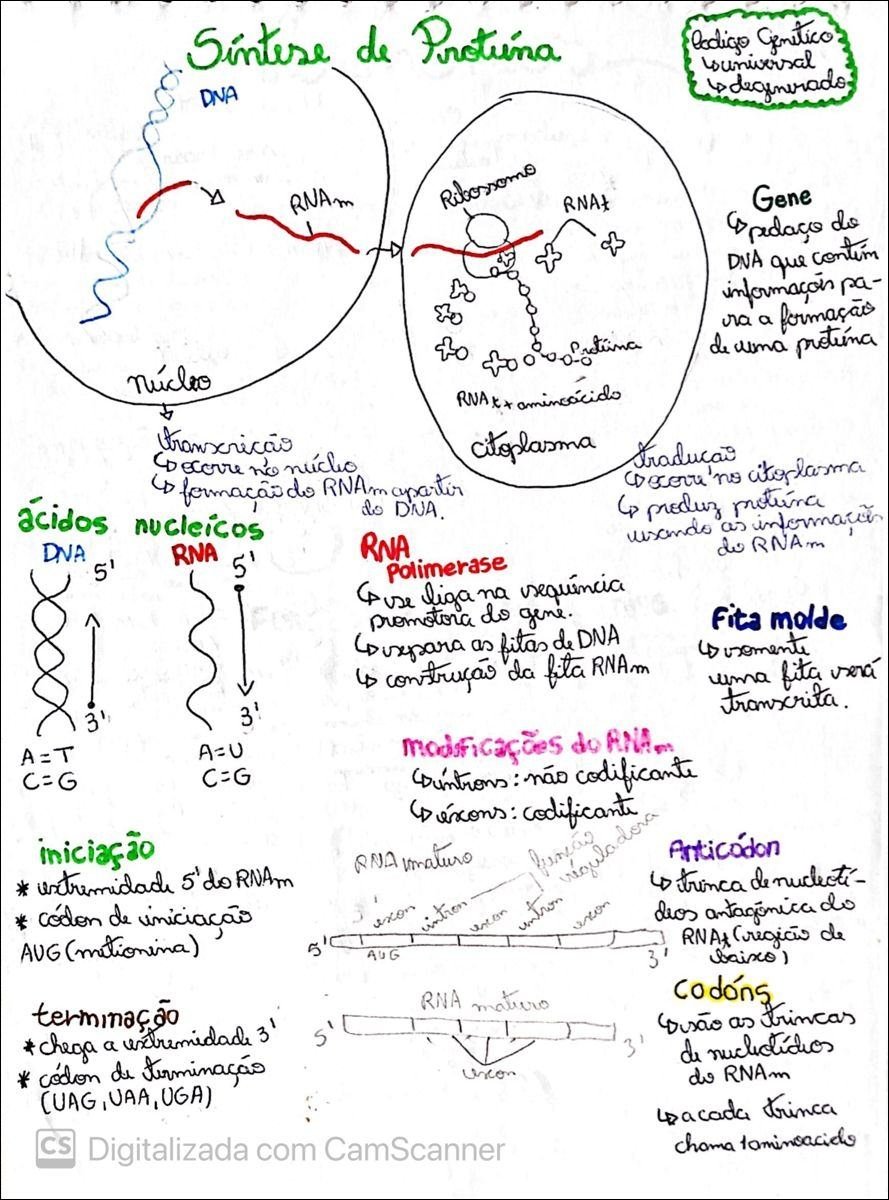 Síntese de Proteína
Código Genético
↳ universal
↳ degenerado
DNA
RNAm
Núcleo
Ribossomo
RNAt
Proteína
RNAt + aminoácido
citoplasma
Gene
↳ pedaço do
DNA que contém
informações pa-
ra a formação
de uma proteína
transcrição
↳ ocorre no núcleo
↳ formação do RNAm apartir
do DNA.
tradução
↳ ocorre no citoplasma
↳ produz proteína
usando as informações
do RNAm
ácidos nucleícos
DNA
5'
3'
A=T
C=G
RNA
5'
3'
A=U
C=G
RNA
Polimerase
↳ se liga na sequência
promotora do gene.
↳ separa as fitas de DNA
↳ construção da fita RNAm
Fita molde
↳ somente
uma fita será
transcrita.
modificações do RNAm
↳ íntrons: não codificante
↳ éxons: codificante
iniciação
* extremidade 5' do RNAm
* códon de iniciação
AUG (metionina)
RNA imaturo
função
reguladora
exon intron exon intron exon
5' AUG 3'
Anticódon
↳ trinca de nucleotí-
deos antagônica do
RNAt (região de
baixo)
terminação
* chega a extremidade 3'
* códon de terminação
(UAG, UAA, UGA)
RNA maturo
5' 3'
exon
codóns
↳ são as trincas
de nucleotídios
do RNAm
↳ a cada trinca
chama 1 aminoacido
CS Digitalizada com CamScanner